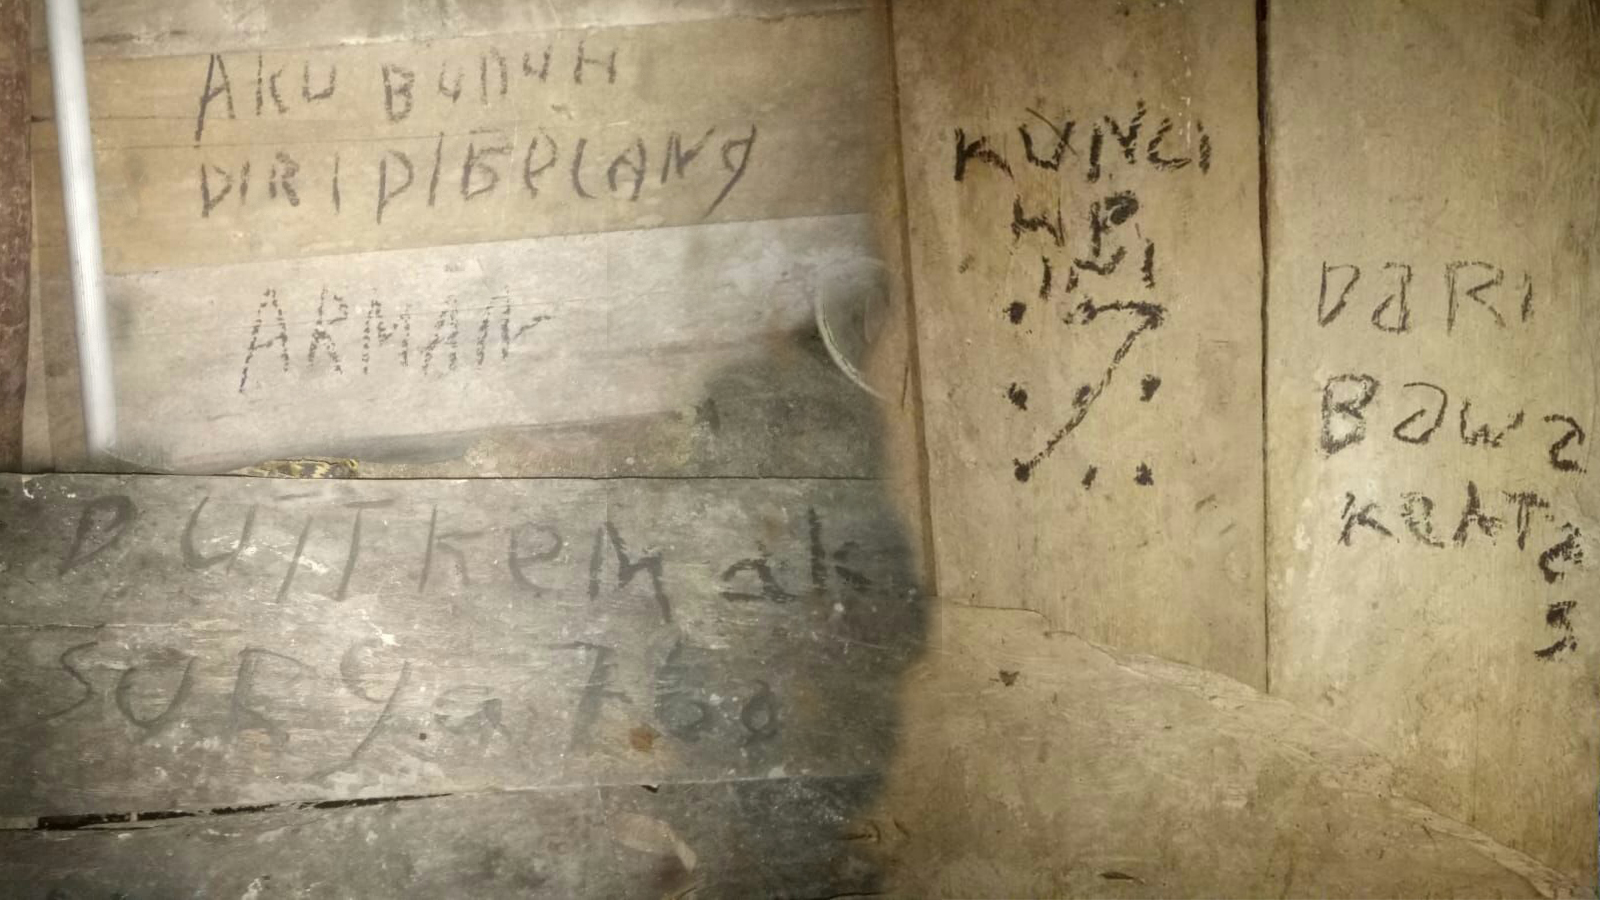 AKU BUNUH
DIRI DIBELANG
ARMAN
DUIT KEMAK
SURYa 700
KUNCI
HP
INI
DaRI
Bawa
KeATas